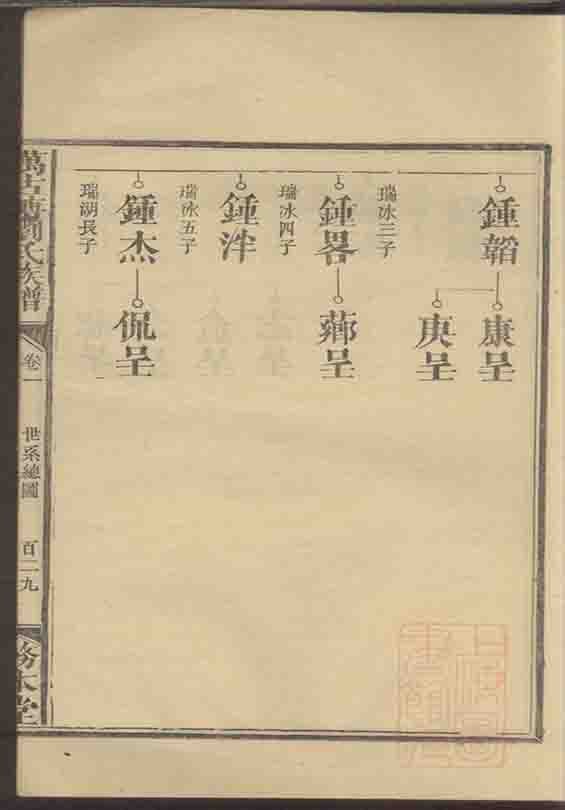 鍾韜
康呈
庚呈
瑞冰三子
鍾畧
薌呈
瑞冰四子
鍾泮
瑞冰五子
鍾杰
侃呈
瑞湖長子
氏族譜
卷一
世系總圖
百二九
務本堂